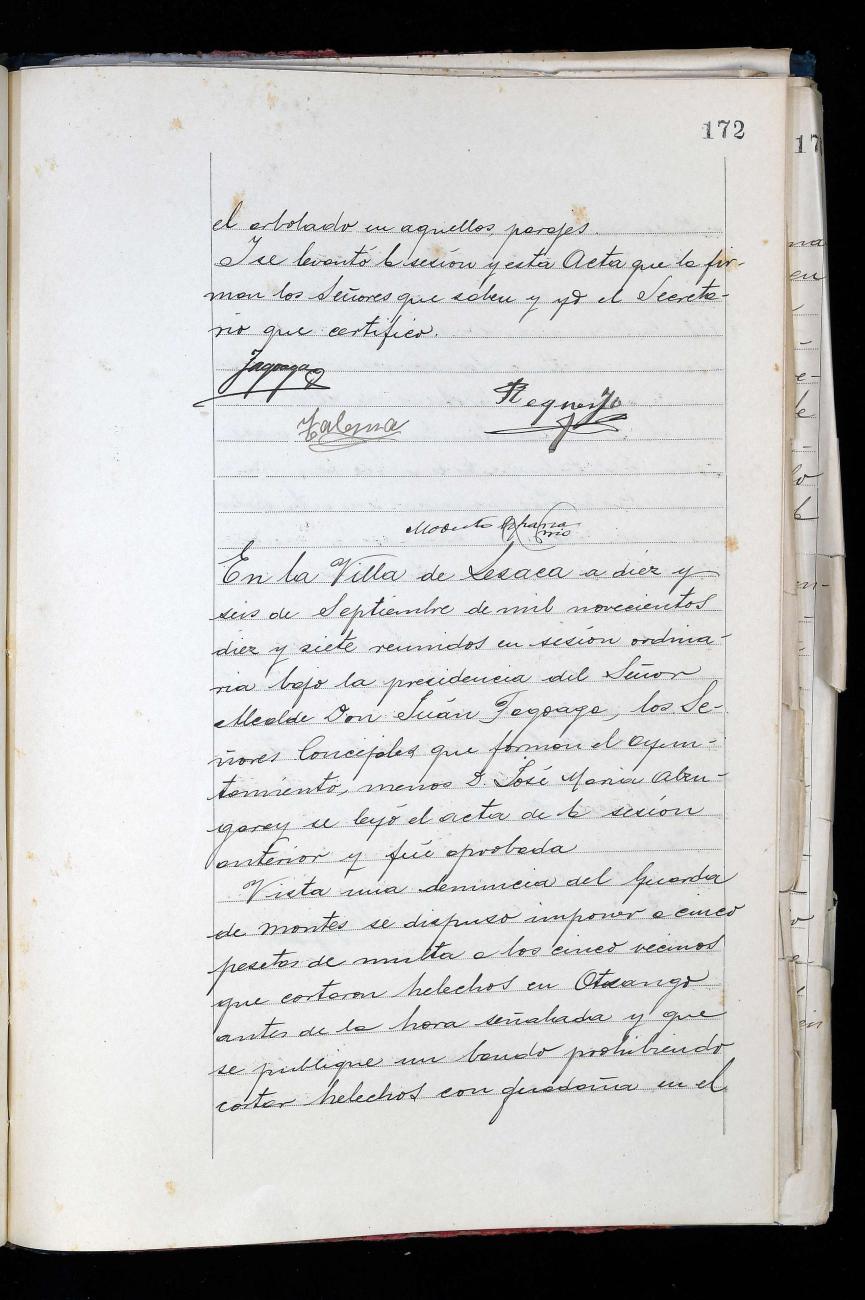 172
el arbolado en aquellos parajes.
I se levantó la sesión y esta Acta que la fir-
man los Señores que saben y yo el Secreta-
rio que certifico.
Tagoaga
Requejo
Modesto
En la Villa de Lesaca a diez y
seis de Septiembre de mil novecientos
diez y siete reunidos en sesión ordina-
ria bajo la presidencia del Señor
Alcalde Don Juán Tagoaga, los Se-
ñores Concejales que forman el Ayun-
tamiento, menos D. José Maria Alzu-
garay se leyó el acta de la sesión
anterior y fué aprobada
Vista una denuncia del Guarda
de montes se dispuso imponer a cinco
pesetas de multa a los cinco vecinos
que cortaron helechos en Otsango
antes de la hora señalada y que
se publique un bando prohibiendo
cortar helechos con guadaña en el